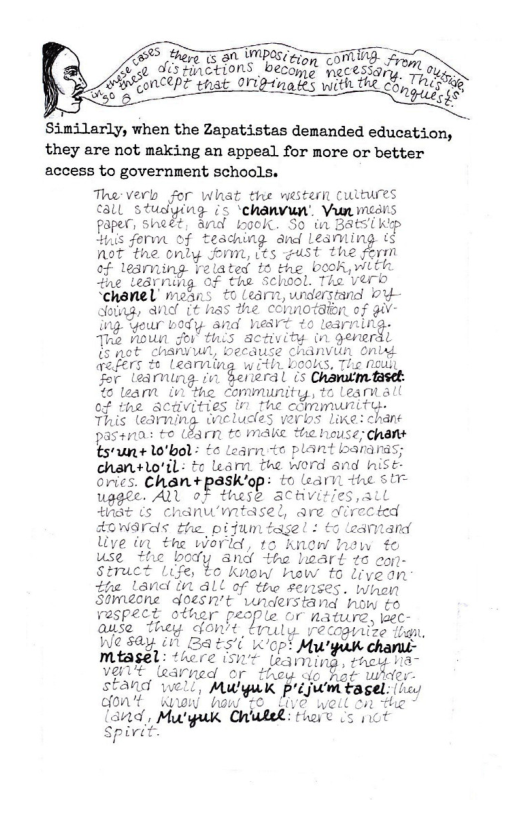 in these cases there is an imposition coming from outside,
so these distinctions become necessary. This is
a concept that originates with the conquest.
Similarly, when the Zapatistas demanded education,
they are not making an appeal for more or better
access to government schools.
The verb for what the western cultures
call studying is 'chanvun'. Vun means
paper, sheet, and book. So in Bats'i k'op
this form of teaching and learning is
not the only form, its just the form
of learning related to the book, with
the learning of the school. The verb
'chanel' means to learn, understand by
doing, and it has the connotation of giv-
ing your body and heart to learning.
The noun for this activity in general
is not chanvun, because chanvun only
refers to learning with books. The noun
for learning in general is Chanu'm tasel:
to learn in the community, to learn all
of the activities in the community.
This learning includes verbs like: chan+
pas+na: to learn to make the house; chan+
ts'un+lo'bol: to learn to plant bananas;
chan+lo'il: to learn the word and hist-
ories. Chan+pask'op: to learn the str-
uggle. All of these activities, all
that is chanu'mtasel, are directed
towards the pijumtasel: to learn and
live in the world, to know how to
use the body and the heart to con-
struct life, to know how to live on
the land in all of the senses. When
someone doesn't understand how to
respect other people or nature, bec-
ause they don't truly recognize them,
we say in Bats'i k'op: Mu'yuk chanu'-
mtasel: there isn't learning, they ha-
ven't learned or they do not under-
stand well, Mu'yuk p'iju'm tasel: they
don't know how to live well on the
land, Mu'yuk Ch'ulel: there is not
spirit.